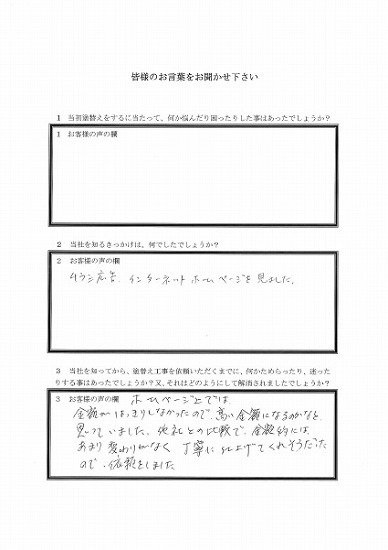 皆様のお言葉をお聞かせ下さい
1 当初塗替えをするに当たって、何か悩んだり困ったりした事はあったでしょうか?
1 お客様の声の欄
2 当社を知るきっかけは、何でしたでしょうか?
2 お客様の声の欄
チラシ広告、インターネット ホームページを見ました。
3 当社を知ってから、塗替え工事を依頼いただくまでに、何かためらったり、迷った
りする事はあったでしょうか?又、それはどのようにして解消されましたでしょうか?
3 お客様の声の欄 ホームページ上では
金額がはっきりしなかったので、高い金額になるのかなと
思っていました。他社との比較で、金額的には
あまり変わりがなく 丁寧に仕上げてくれそうだった
ので、依頼をしました